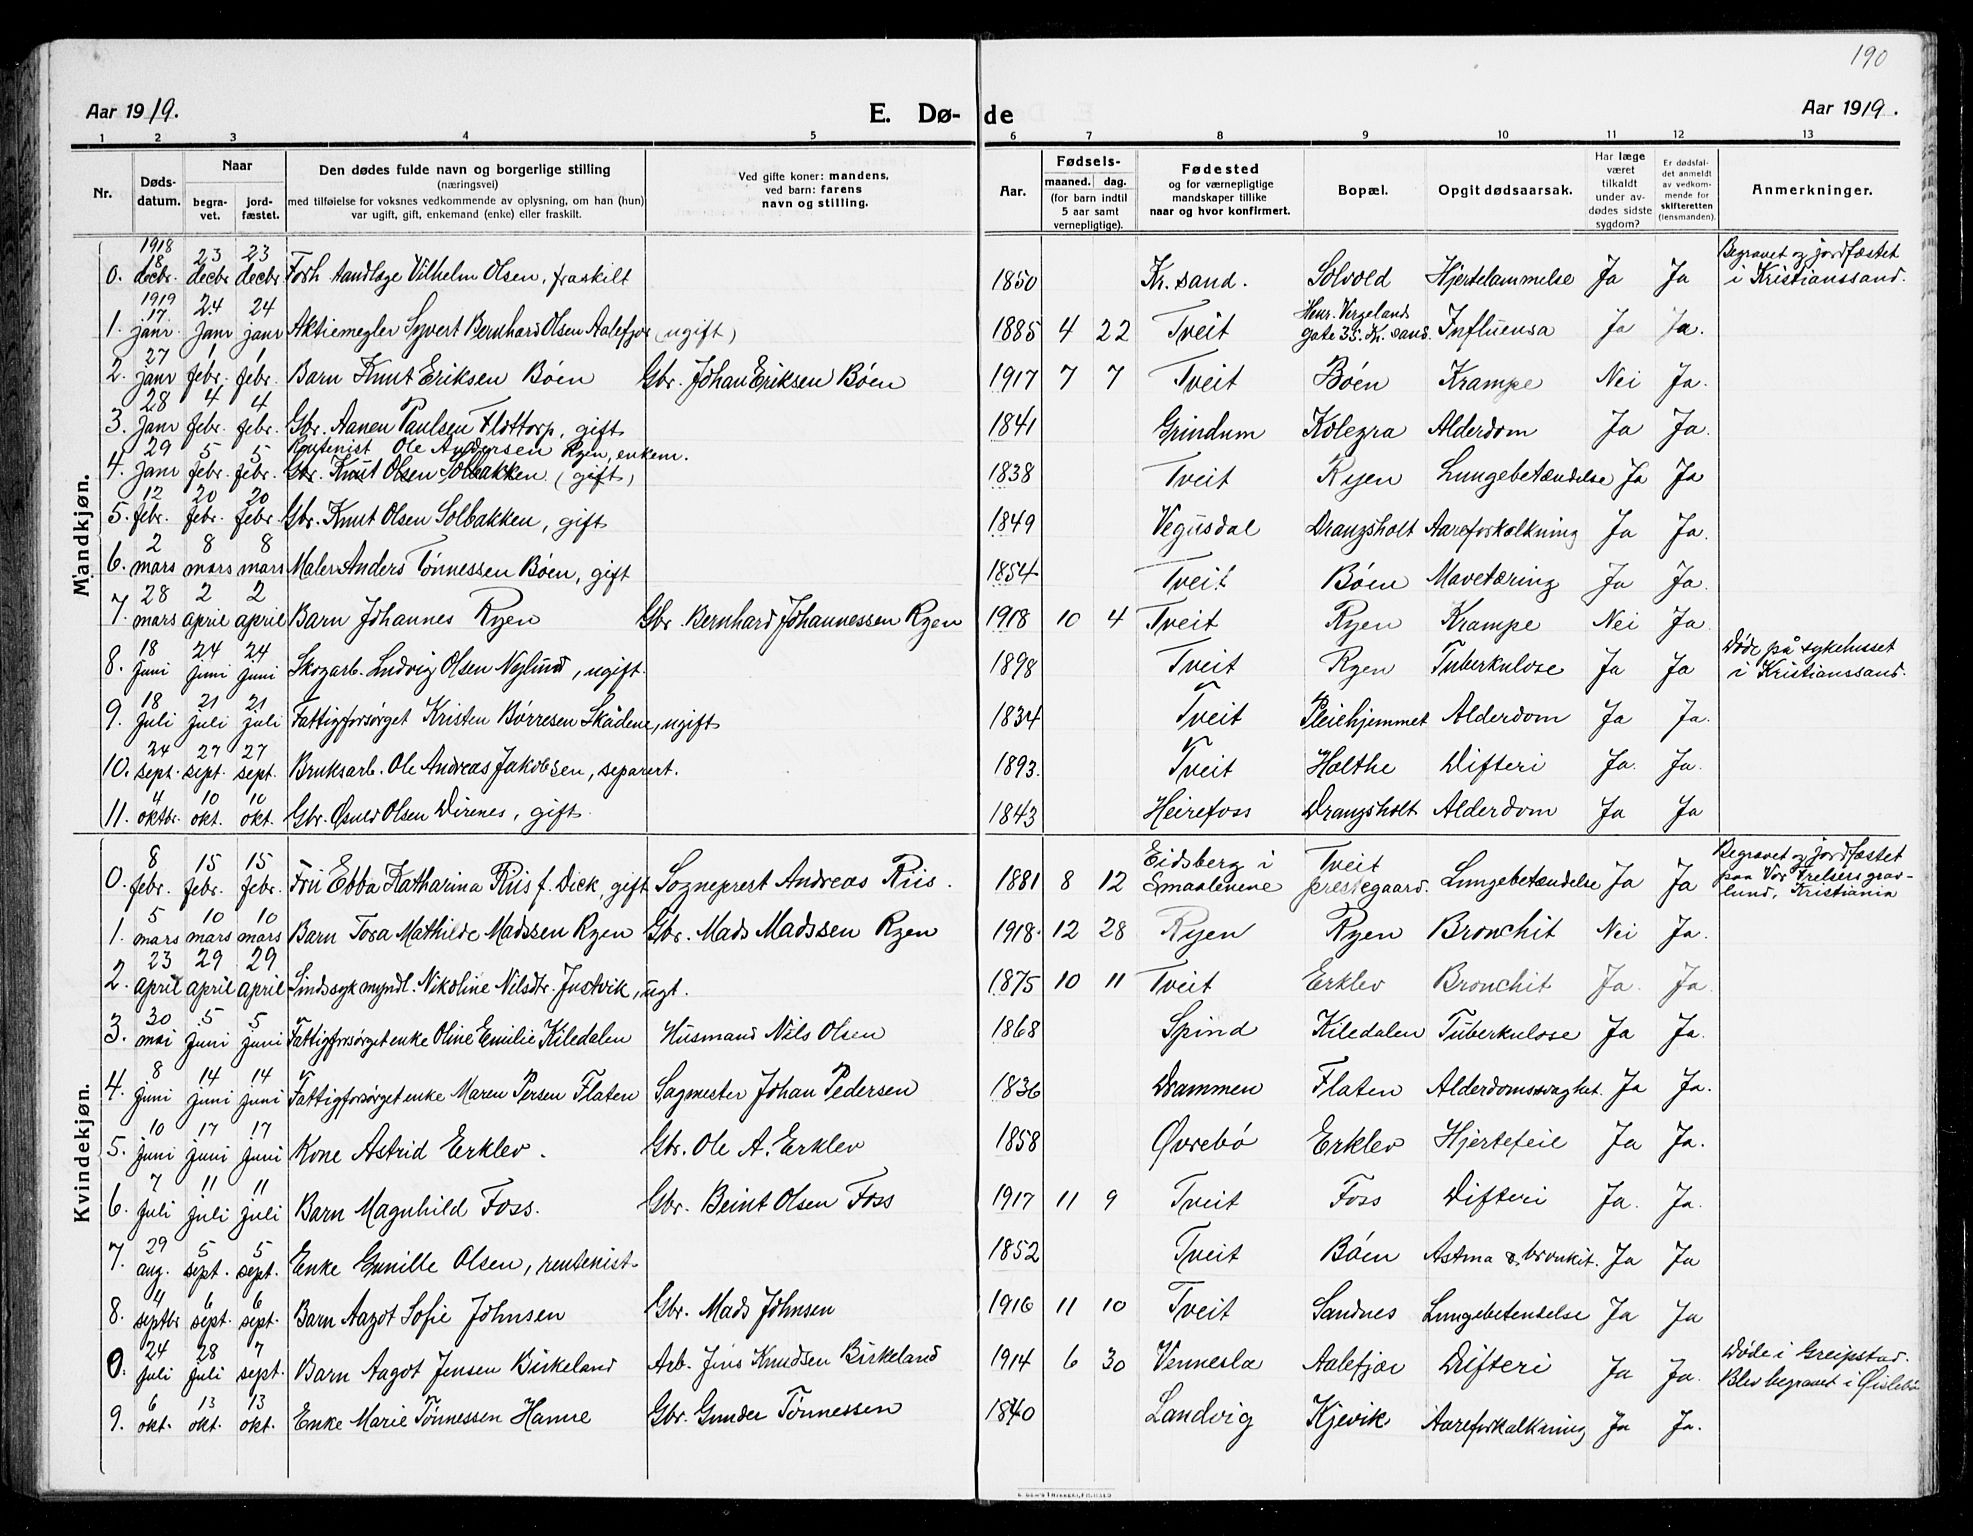 190
Aar 1919. E. Dø- de Aar 1919.
1 2 3 4 5 6 7 8 9 10 11 12 13
Nr. Døds-datum. Naar begra-vet. jord-fæstet. Den dødes fulde navn og borgerlige stilling (næringsvei) med tilføielse for voksnes vedkommende av oplysning, om han (hun) var ugift, gift, enkemand (enke) eller fraskilt. Ved gifte koner: mandens, ved barn: farens navn og stilling. Aar. Fødsels- maaned. dag. (for barn indtil 5 aar samt vernepligtige). Fødested og for værnepligtige mandskaper tillike naar og hvor konfirmert. Bopæl. Opgit dødsaarsak. Har læge været tilkaldt under av-dødes sidste sygdom? Er dødsfal-det anmeldt av vedkom-mende for skifteretten (lensmanden). Anmerkninger.
Mandkjøn.
0. 1918 18 decbr. 23 decbr 23 decbr Forh handlage Vilhelm Olsen, fraskilt 1850 Kr.sand. Solvold Hjertelammelse Ja Ja Begravet og jordfæstet i Kristianssand.
1. 1919 17. janr. 24 janr 24 janr Aktiemegler Syvert Bernhard Olsen Aalefjær (ugift) 1885 4 22 Tveit Henr. Vergelands gate 35. Kr. sand. Influensa Ja Ja.
2. 27 janr 1 febr. 1 febr. Barn Knut Eriksen Bøen Gbr. Johan Eriksen Bøen 1917 7 7 Tveit Bøen Krampe Nei Ja.
3. 28 janr 4 febr. 4 febr. Gbr. Aanen Paulsen Flottorp, gift 1841 Grindum Kolegra Alderdom Ja Ja.
4. 29 janr 5 febr. 5 febr. Rentenist Ole Andersen Ryen, enkem. Gbr. Knut Olsen Solbakken (gift) 1838 Tveit Ryen Lungebetændelse Ja Ja
5. 12 febr. 20 febr. 20 febr. Gbr. Knut Olsen Solbakken, gift 1849 Vegusdal Drangsholt Aareforkalkning Ja Ja.
6. 2 mars 8 mars 8 mars Maler Anders Tønnessen Bøen, gift 1854 Tveit Bøen Mavetæring Ja Ja.
7. 28 mars 2 april 2 april Barn Johannes Ryen Gbr. Bernhard Johannessen Ryen 1918 10 4 Tveit Ryen Krampe Nei Ja.
8. 18 juni 24 juni 24 juni Skogarb. Ludvig Olsen Nylund, ugift. 1898 Tveit Ryen Tuberkulose Ja Ja Døde på sykehuset i Kristianssand.
9. 18 juli 21 juli 21 juli Fattigforsørget Kristen Børresen Skådene, ugift 1834 Tveit Pleiehjemmet Alderdom Ja Ja.
10. 24 sept. 27 sept. 27 sept. Bruksarb. Ole Andreas Jakobsen, separert. 1893. Tveit Holthe Difteri Ja. Ja.
11. 4 oktbr. 10 okt. 10 okt. Gbr. Osuld Olsen Direnes, gift. 1843 Heirefoss Drangsholt Alderdom Ja Ja
Kvindekjøn.
0. 8 febr. 15 febr. 15 febr. Fru Ebba Katharina Riis f. Dick, gift Sogneprest Andreas Riis. 1881 8 12 Eidsberg i Smaalenene Tveit prestegaard. Lungebetændelse Ja Ja Begravet og jordfæstet paa Vor Frelsers grav-lund, Kristiania
1. 5 mars 10 mars 10 mars Barn Tora Mathilde Madssen Ryen Gbr. Mads Madssen Ryen 1918. 12 28 Ryen Ryen Bronchit Nei Ja.
2. 23 april 29 april 29 april Sindssyk myndl. Nikoline Nilsdtr. Justvik, ugt. 1875 10 11 Tveit Erklev Bronchit Ja. Ja.
3. 30 mai 5 juni 5 juni Fattigforsørget enke Oline Emilie Kiledalen Husmand Nils Olsen 1868 Spind Kiledalen Tuberkulose Ja Ja.
4. 8 juni 14 juni 14 juni Fattigforsørget enke Maren Persen Flaten Sagmester Johan Pedersen 1836 Drammen Flaten Alderdomssvaghet. Ja Ja.
5. 10 juni 17 juni 17 juni Kone Astrid Erklev. Gbr. Ole A. Erklev 1858 Øvrebø Erklev Hjertefeil Ja Ja.
6. 7 juli 11 juli 11 juli Barn Magnhild Foss. Gbr. Beint Olsen Foss 1917 11 9 Tveit Foss Difteri Ja. Ja.
7. 29 aug. 5 sept. 5 sept. Enke Gunille Olsen, rentenist 1852 Tveit Bøen Astma & bronkit. Ja Ja
8. 4 septbr 6 sept. 6 sept. Barn Aagot Sofie Johnsen Gbr. Mads Johnsen 1916 11 10 Tveit Sandnes Lungebetendelse Ja Ja
0. 24 juli 28 juli 7 sept. Barn Aagot Jensen Birkeland Arb. Jens Knudsen Birkeland 1914 6 30 Vennesla Aalefjær Difteri Ja Ja. Døde i Greipstad. Blev begravet i Øislebø
9. 6 okt. 13 okt. 13 okt. Enke Marie Tønnessen Hamre Gbr. Gunder Tønnessen 1840 Landvig Kjevik Aareforkalkning Ja Ja.